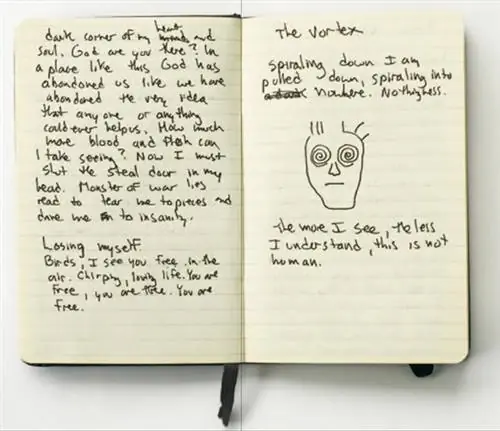 dark corner of my heart and
soul. God are you there? In
a place like this God has
abandoned us like we have
abondored the very idea
that any one or anything
could ever help us. How much
more blood and flesh can
I take seeing? Now I must
shut the steal door in my
head. Monster of war lies
read to tear me to pieces and
drive me to insanity.
Losing myself
Birds, I see you free. in the
air. Chirping, loving life. You are
free, you are there. You are
free.
The Vortex
spiraling down I am
pulled down, spiraling into
nowhere. Nothingness.
The more I see, the less
I understand, this is not
human.